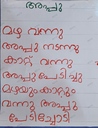 അപ്പു
മഴ വന്നു
അപ്പു നടന്നു
കാറ്റ് വന്നു
അപ്പു പേടിച്ചു
മഴയും കാറ്റും
വന്നു അപ്പു
പേടിച്ചോടി